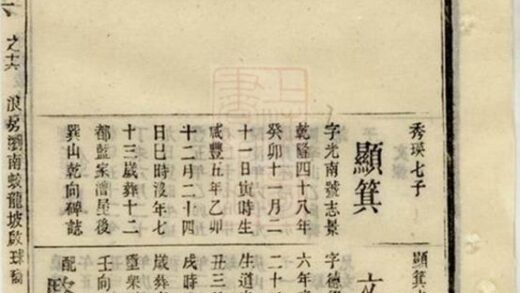 秀瑛七子
顯箕
字光南號志景
乾隆四十八年
癸卯十一月二
十一日寅時生
咸豐五年乙卯
十二月二十四
日巳時沒年七
十三歲葬十二
都藍家漕屋後
巽山乾向碑誌
顯箕
字德
六年
二十
生道
丑三
戌時
歲葬
壬向
配
之十六
浪房瀏南蛟龍坡啟球